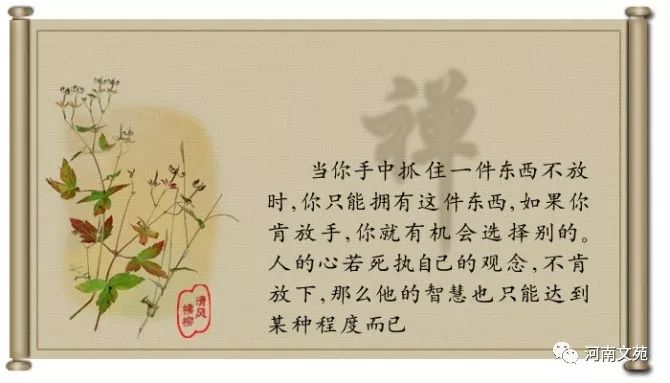 禅
当你手中抓住一件东西不放
时,你只能拥有这件东西,如果你
肯放手,你就有机会选择别的。
人的心若死执自己的观念,不肯
放下,那么他的智慧也只能达到
某种程度而已
清风
拂柳
河南文苑